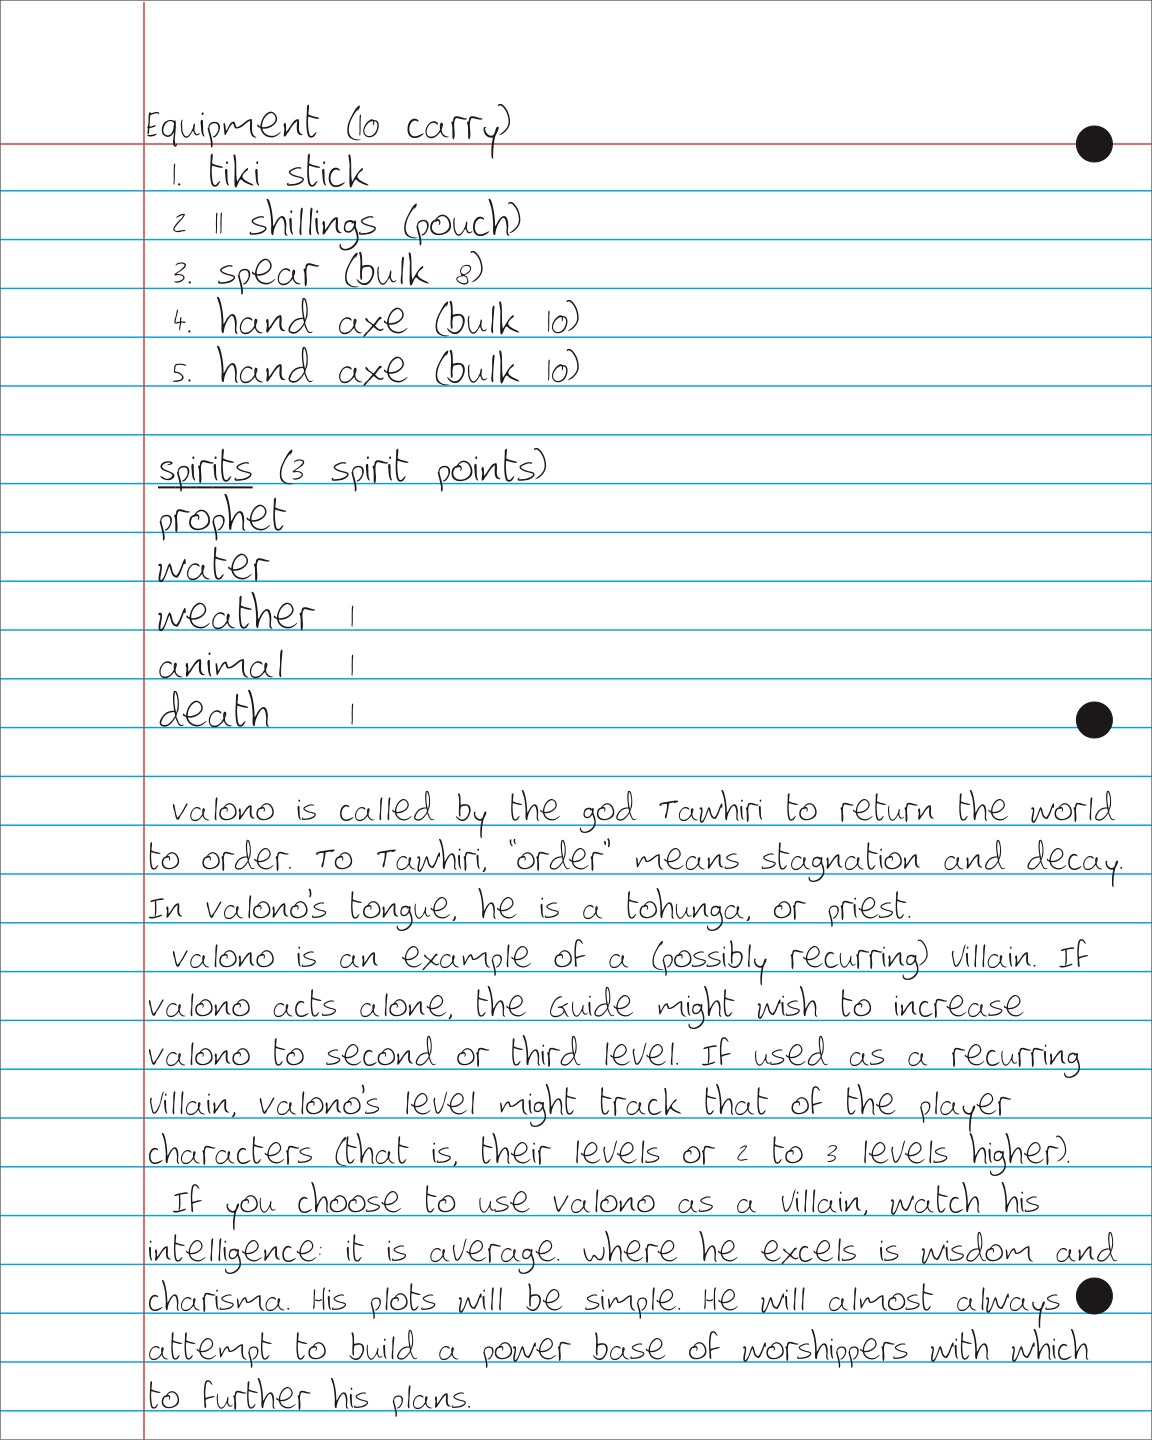 Equipment (10 carry)
1. tiki stick
2 11 shillings (pouch)
3. spear (bulk 8)
4. hand axe (bulk 10)
5. hand axe (bulk 10)
spirits (3 spirit points)
prophet
water
weather 1
animal 1
death 1
Valono is called by the god Tawhiri to return the world
to order. To Tawhiri, "order" means stagnation and decay.
In Valono's tongue, he is a tohunga, or priest.
Valono is an example of a (possibly recurring) villain. If
Valono acts alone, the Guide might wish to increase
Valono to second or third level. If used as a recurring
villain, Valono's level might track that of the player
characters (that is, their levels or 2 to 3 levels higher).
If you choose to use Valono as a villain, watch his
intelligence: it is average. Where he excels is wisdom and
charisma. His plots will be simple. He will almost always
attempt to build a power base of worshippers with which
to further his plans.